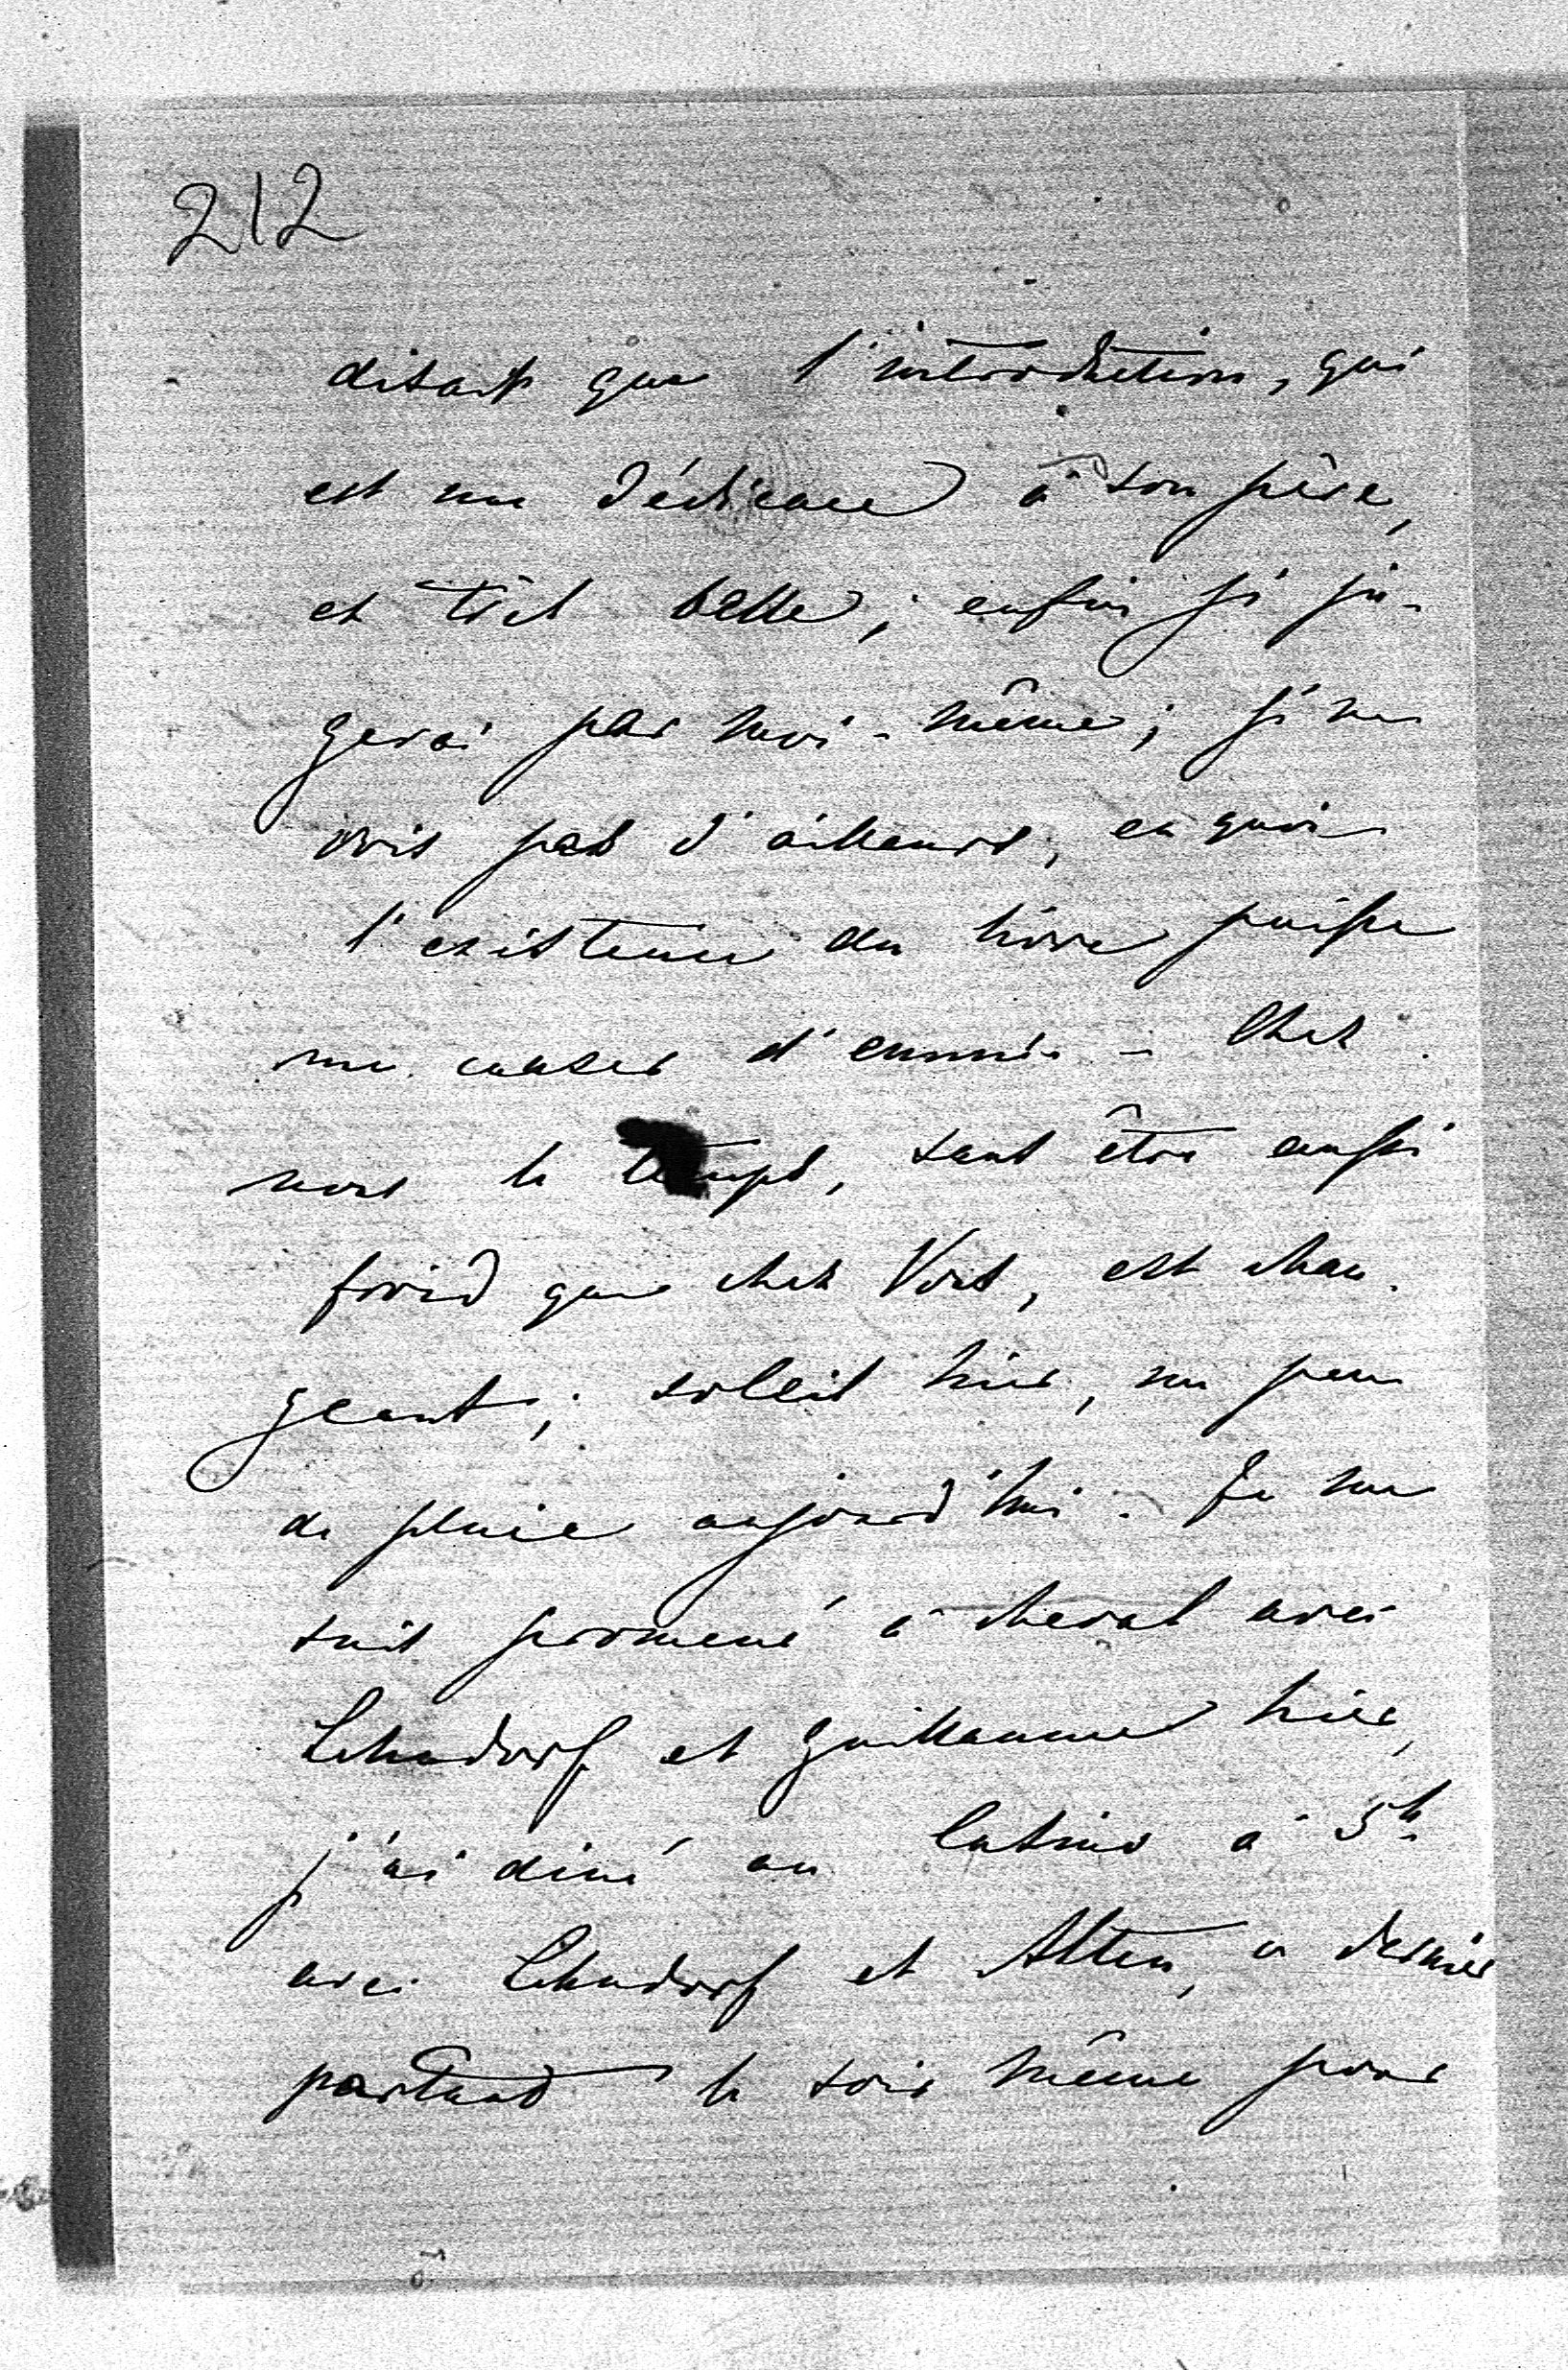 212
disait que l'introduction, qui
est une dédicace à son père,
est très belle; enfin je ju-
gerai par moi-même; je ne
vois pas d'ailleurs, en quoi
l'existence du livre puisse
me causer d'ennui - Chez
nous le temps, sans être aussi
froid que chez Vous, est chan-
geant; soleil hier, un peu
de pluie aujourd'hui. Je me
suis promené à cheval avec
Lehndorf et Guillaume hier,
j'ai diné au Casino à 5h
avec Lehndorf et Alten, ce dernier
partant le soir même pour